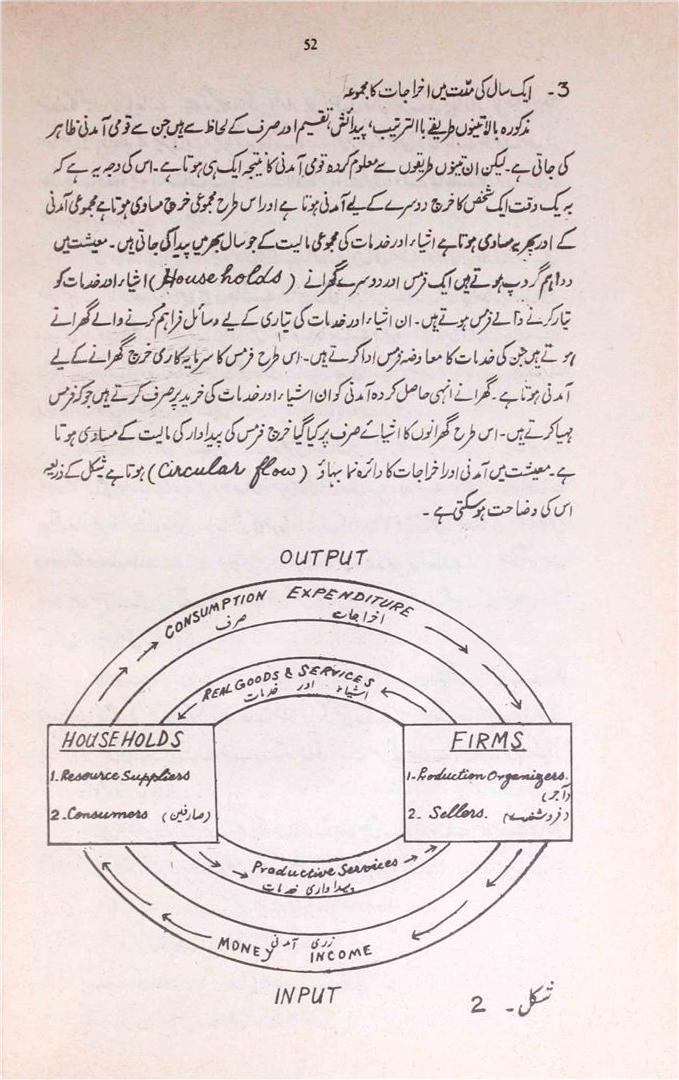 52
3 - ایک سال کی مدّت میں اخراجات کا مجموعہ
مذکورہ بالا تینوں طریقے باالترتیب، پیدائش، تقسیم اور صرف کے لحاظ سے ہیں جن سے قومی آمدنی ظاہر
کی جاتی ہے۔ لیکن ان تینوں طریقوں سے معلوم کردہ قومی آمدنی کا نتیجہ ایک ہی ہوتا ہے۔ اس کی وجہ یہ ہے کہ
بہ یک وقت ایک شخص کا خرچ دوسرے کے لیے آمدنی ہوتا ہے اور اس طرح مجموعی خرچ مساوی ہوتا ہے مجموعی آمدنی
کے اور پھر یہ مساوی ہوتا ہے اشیاء اور خدمات کی مجموعی مالیت کے جو سال بھر میں پیدا کی جاتی ہیں۔ معیشت میں
دو اہم گروپ ہوتے ہیں ایک فرمس اور دوسرے گھرانے (Households) اشیاء اور خدمات کو
تیار کرنے والے فرمس ہوتے ہیں۔ ان اشیاء اور خدمات کی تیاری کے لیے وسائل فراہم کرنے والے گھرانے
ہوتے ہیں جن کی خدمات کا معاوضہ فرمس ادا کرتے ہیں۔ اس طرح فرمس کا سرمایہ کاری خرچ گھرانے کے لیے
آمدنی ہوتا ہے۔ گھرانے انہی حاصل کردہ آمدنی کو ان اشیاء اور خدمات کی خرید پر صرف کرتے ہیں جو کہ فرمس
مہیا کرتے ہیں۔ اس طرح گھرانوں کا اشیائے صرف پر کیا گیا خرچ فرمس کی پیداوار کی مالیت کے مساوی ہوتا
ہے۔ معیشت میں آمدنی اور اخراجات کا دائرہ نما بہاؤ (Circular flow) ہوتا ہے شکل کے ذریعہ
اس کی وضاحت ہو سکتی ہے۔
OUTPUT
CONSUMPTION EXPENDITURE
صرف اخراجات
REAL GOODS & SERVICES
اشیاء اور خدمات
HOUSEHOLDS
1. Resource Suppliers
2. Consumers (صارفین)
FIRMS
1- Production Organizers.
(آجر)
2- Sellers. (فروشندے)
Productive Services
پیداواری خدمات
زری آمدنی
MONEY INCOME
INPUT
شکل - 2